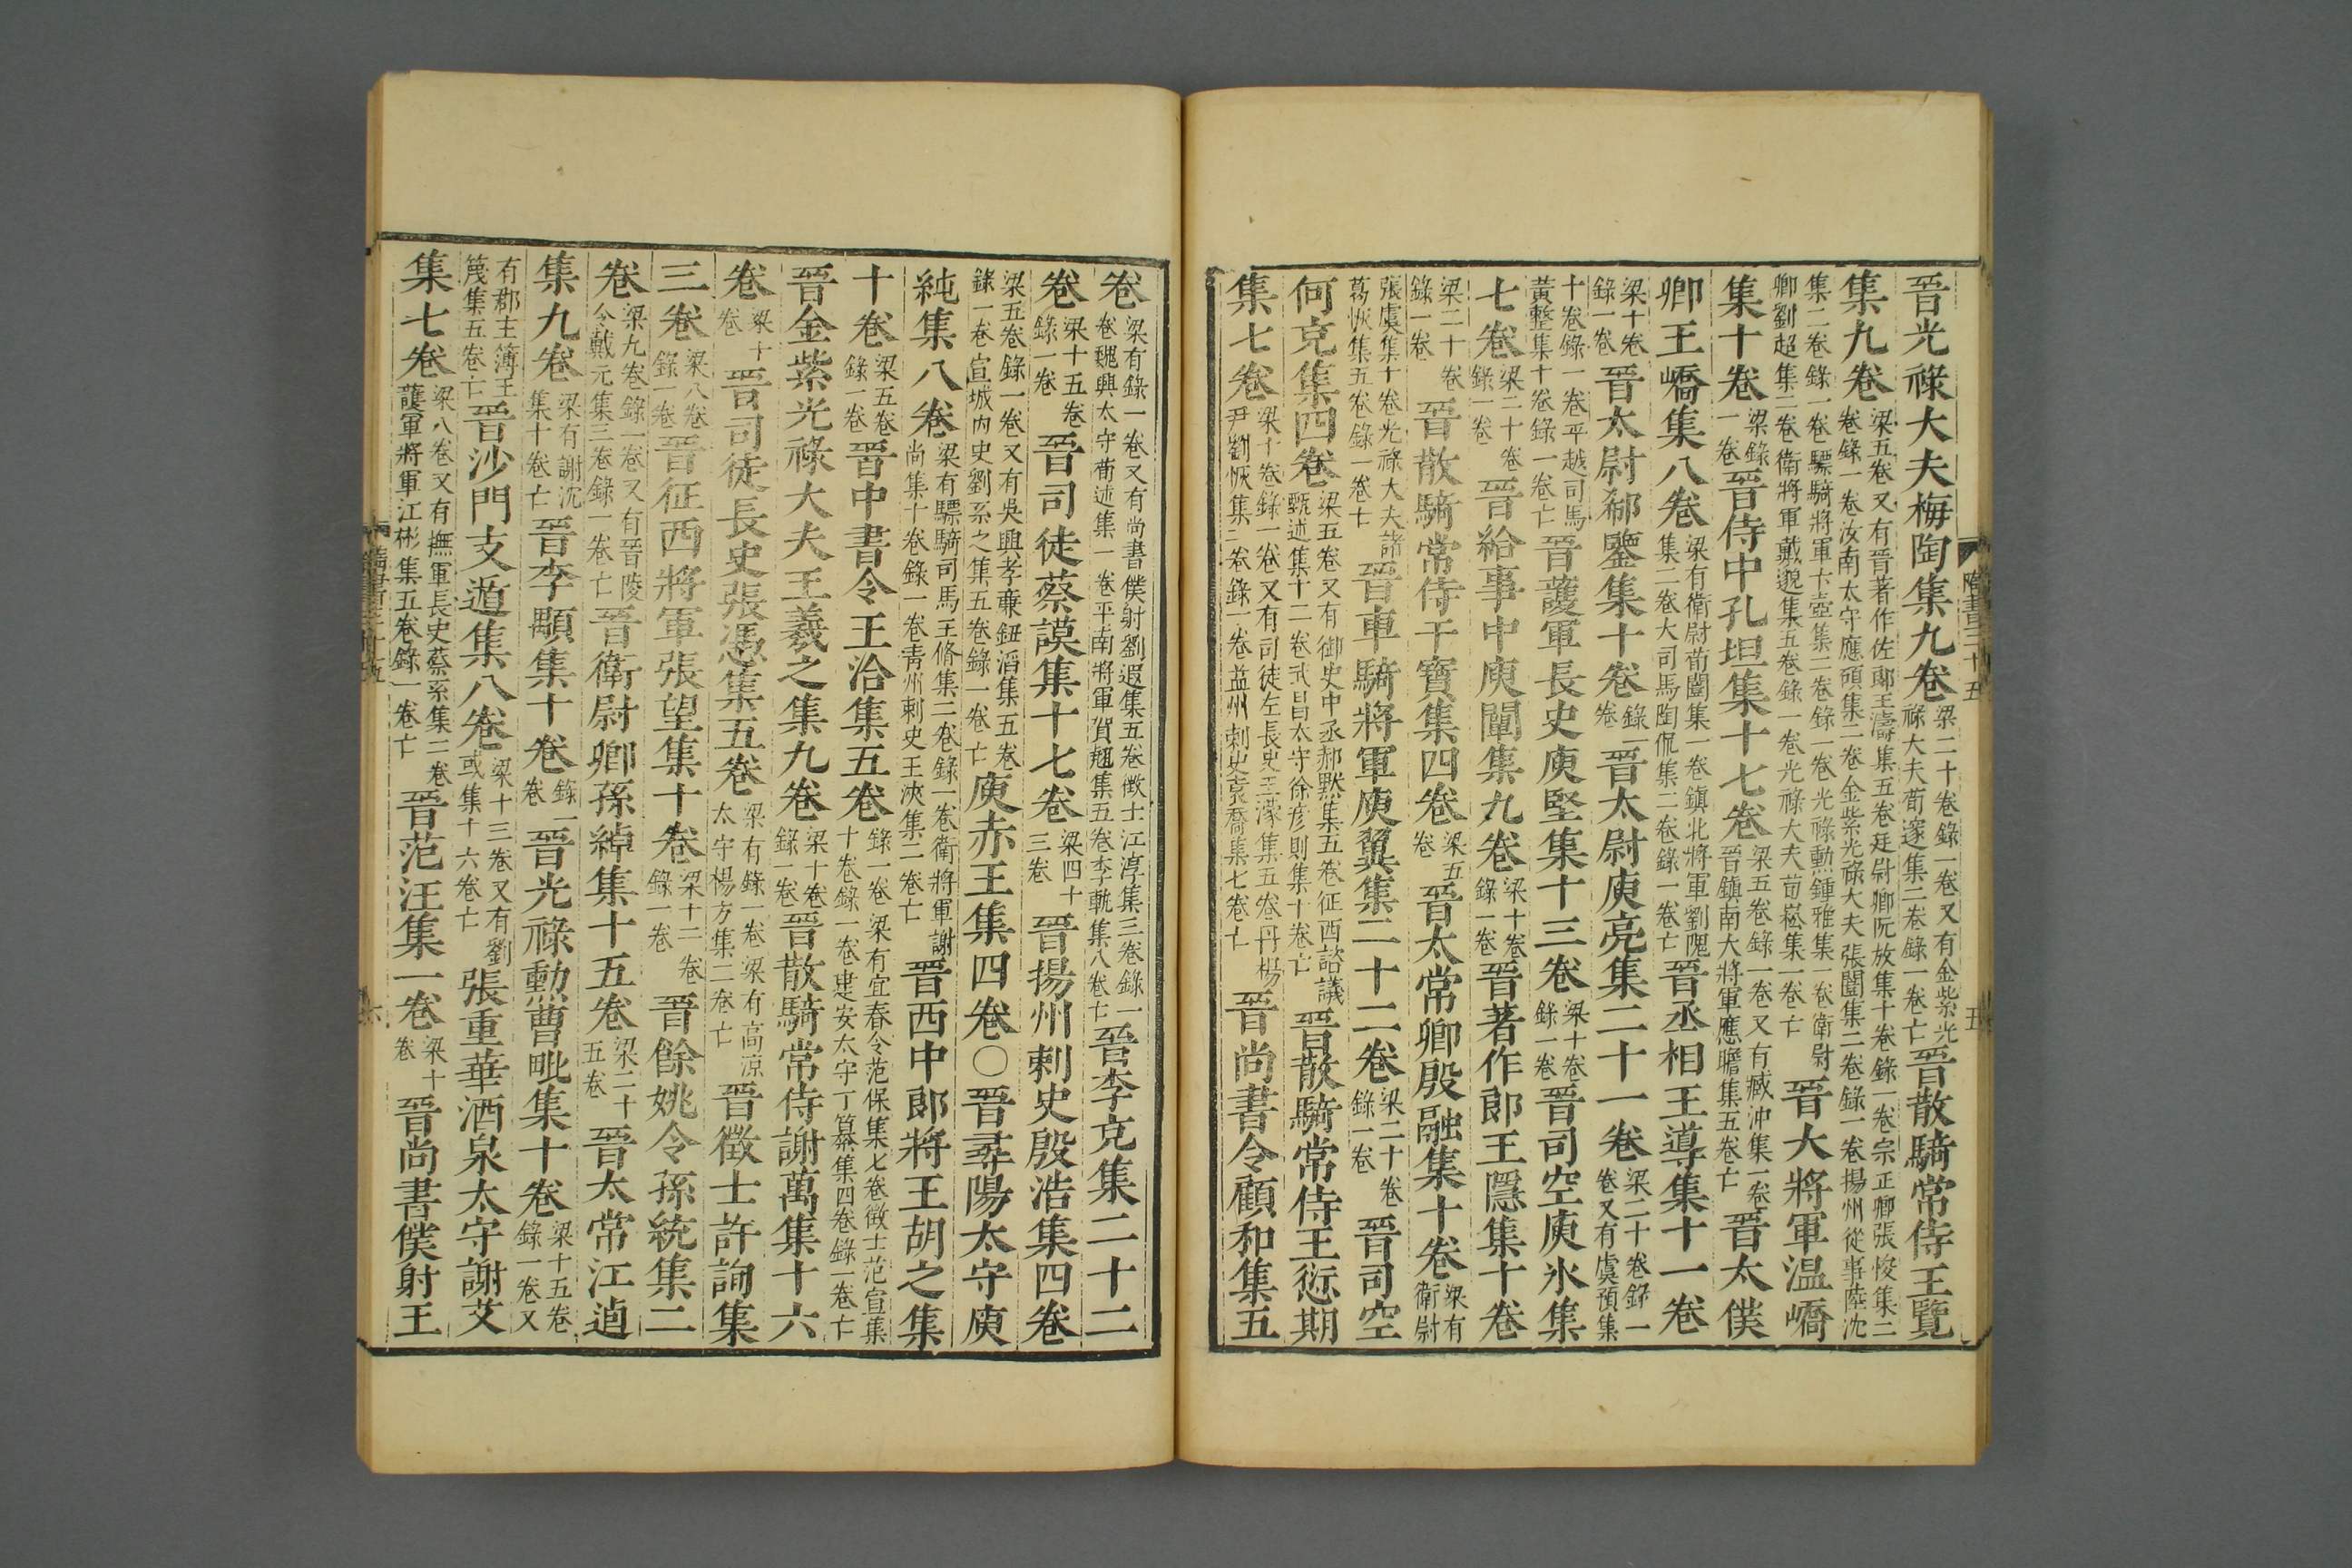 晉光祿大夫梅陶集九卷梁二十卷錄一卷又有金紫光祿大夫荀邃集二卷錄一卷亡晉散騎常侍王覽
集九卷梁五卷又有晉著作佐郎王濤集五卷廷尉卿阮放集十卷錄一卷宗正卿張悛集二卷錄一卷汝南太守應碩集二卷金紫光祿大夫張闓集二卷錄一卷揚州從事陸沈
集二卷錄一卷驃騎將軍卞壺集二卷錄一卷光祿勳鍾雅集一卷衛尉卿劉超集二卷衛將軍戴邈集五卷錄一卷光祿大夫荀崧集一卷亡晉大將軍温嶠
集十卷梁錄一卷晉侍中孔坦集十七卷梁五卷錄一卷又有臧沖集一卷晉鎮南大將軍應瞻集五卷亡晉太僕
卿王嶠集八卷梁有衛尉荀闓集一卷鎮北將軍劉隗集二卷大司馬陶侃集二卷錄一卷亡晉丞相王導集十一卷
梁十卷錄一卷晉太尉郗鑒集十卷錄一卷晉太尉庾亮集二十一卷梁二十卷錄一卷又有虞預集
十卷錄一卷平越司馬黃整集十卷錄一卷亡晉護軍長史庾堅集十三卷梁十卷錄一卷晉司空庾冰集
七卷梁二十卷錄一卷晉給事中庾闡集九卷梁十卷錄一卷晉著作郎王隱集十卷
梁二十卷錄一卷晉散騎常侍干寶集四卷梁五卷晉太常卿殷融集十卷梁有衛尉
張虞集十卷光祿大夫諸葛恢集五卷錄一卷亡晉車騎將軍庾翼集二十二卷梁二十卷錄一卷晉司空
何充集四卷梁五卷又有御史中丞郝默集五卷征西諮議甄述集十二卷武昌太守徐彦則集十卷亡晉散騎常侍王愆期
集七卷梁十卷錄一卷又有司徒左長史王濛集五卷丹楊尹劉恢集二卷錄一卷益州刺史袁喬集七卷亡晉尚書令顧和集五
隋書三十五
五
卷梁有錄一卷又有尚書僕射劉遐集五卷徵士江淳集三卷錄一卷魏興太守荀述集一卷平南將軍賀翹集五卷李軌集八卷亡晉李充集二十二
卷梁十五卷錄一卷晉司徒蔡謨集十七卷梁四十三卷晉揚州刺史殷浩集四卷
梁五卷錄一卷又有吳興孝廉鈕滔集五卷錄一卷宣城內史劉系之集五卷錄一卷亡庾赤王集四卷〇晉尋陽太守庾
純集八卷梁有驃騎司馬王脩集二卷錄一卷衛將軍謝尚集十卷錄一卷青州刺史王浹集二卷亡晉西中郎將王胡之集
十卷梁五卷錄一卷晉中書令王洽集五卷錄一卷梁有宜春令范保集七卷徵士范宣集十卷錄一卷建安太守丁纂集四卷錄一卷亡
晉金紫光祿大夫王羲之集九卷梁十卷錄一卷晉散騎常侍謝萬集十六
卷梁十卷晉司徒長史張憑集五卷梁有錄一卷梁有高涼太守楊方集二卷亡晉徵士許詢集
三卷梁八卷錄一卷晉征西將軍張望集十卷梁十二卷錄一卷晉餘姚令孫統集二
卷梁九卷錄一卷又有晉陵令戴元集三卷錄一卷亡晉衛尉卿孫綽集十五卷梁二十五卷晉太常江逌
集九卷梁有謝沈集十卷亡晉李顒集十卷錄一卷晉光祿勳曹毗集十卷梁十五卷錄一卷又
有郡主簿王篾集五卷亡晉沙門支遁集八卷梁十三卷又有劉彧集十六卷亡張重華酒泉太守謝艾
集七卷梁八卷又有撫軍長史蔡系集二卷護軍將軍江彬集五卷錄一卷亡晉范汪集一卷梁十卷晉尚書僕射王
六